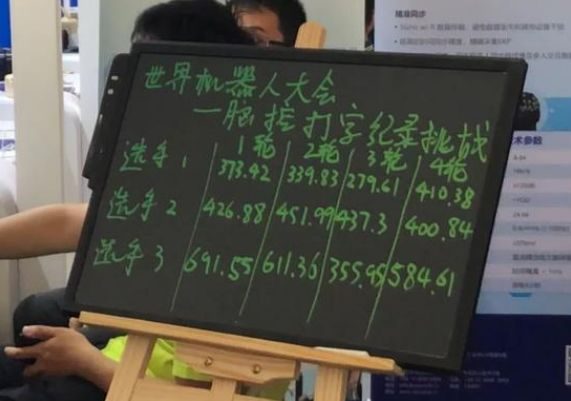 世界机器人大会
—脑控打字纪录挑战
1轮 2轮 3轮 4轮
选手1 373.42 339.83 279.61 410.38
选手2 426.88 451.99 437.3 400.84
选手3 691.55 611.36 355.95 584.61
精准同步
术参数